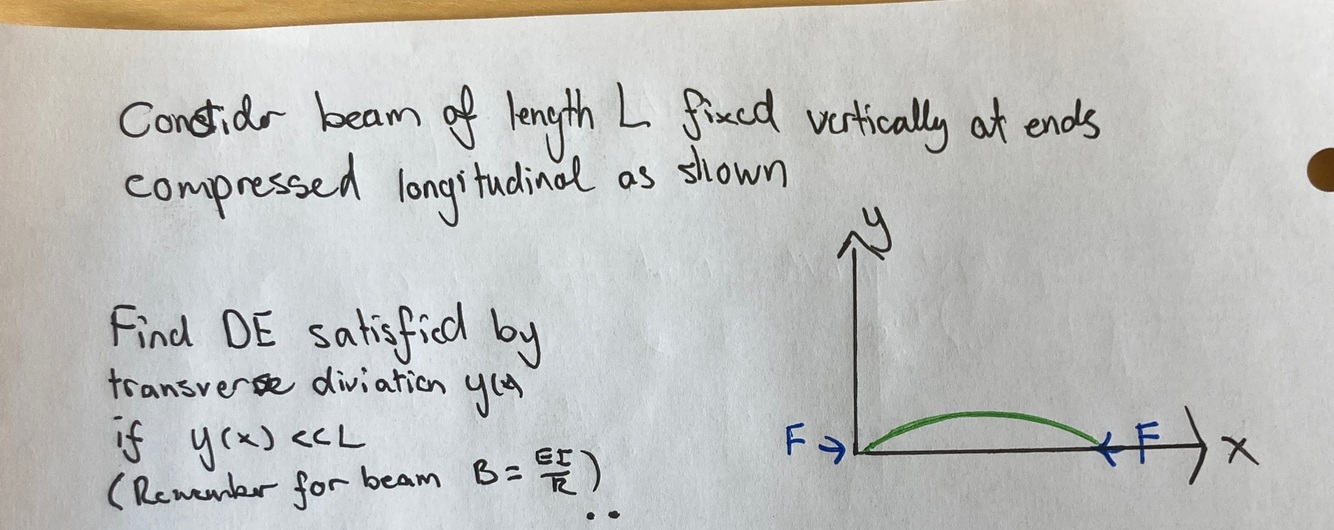 Consider beam of length L fixed vertically at ends
compressed longitudinal as shown
y
Find DE satisfied by
transverse diviation y(x)
if y(x) << L
F → ← F x
(Remember for beam B = EI/R)